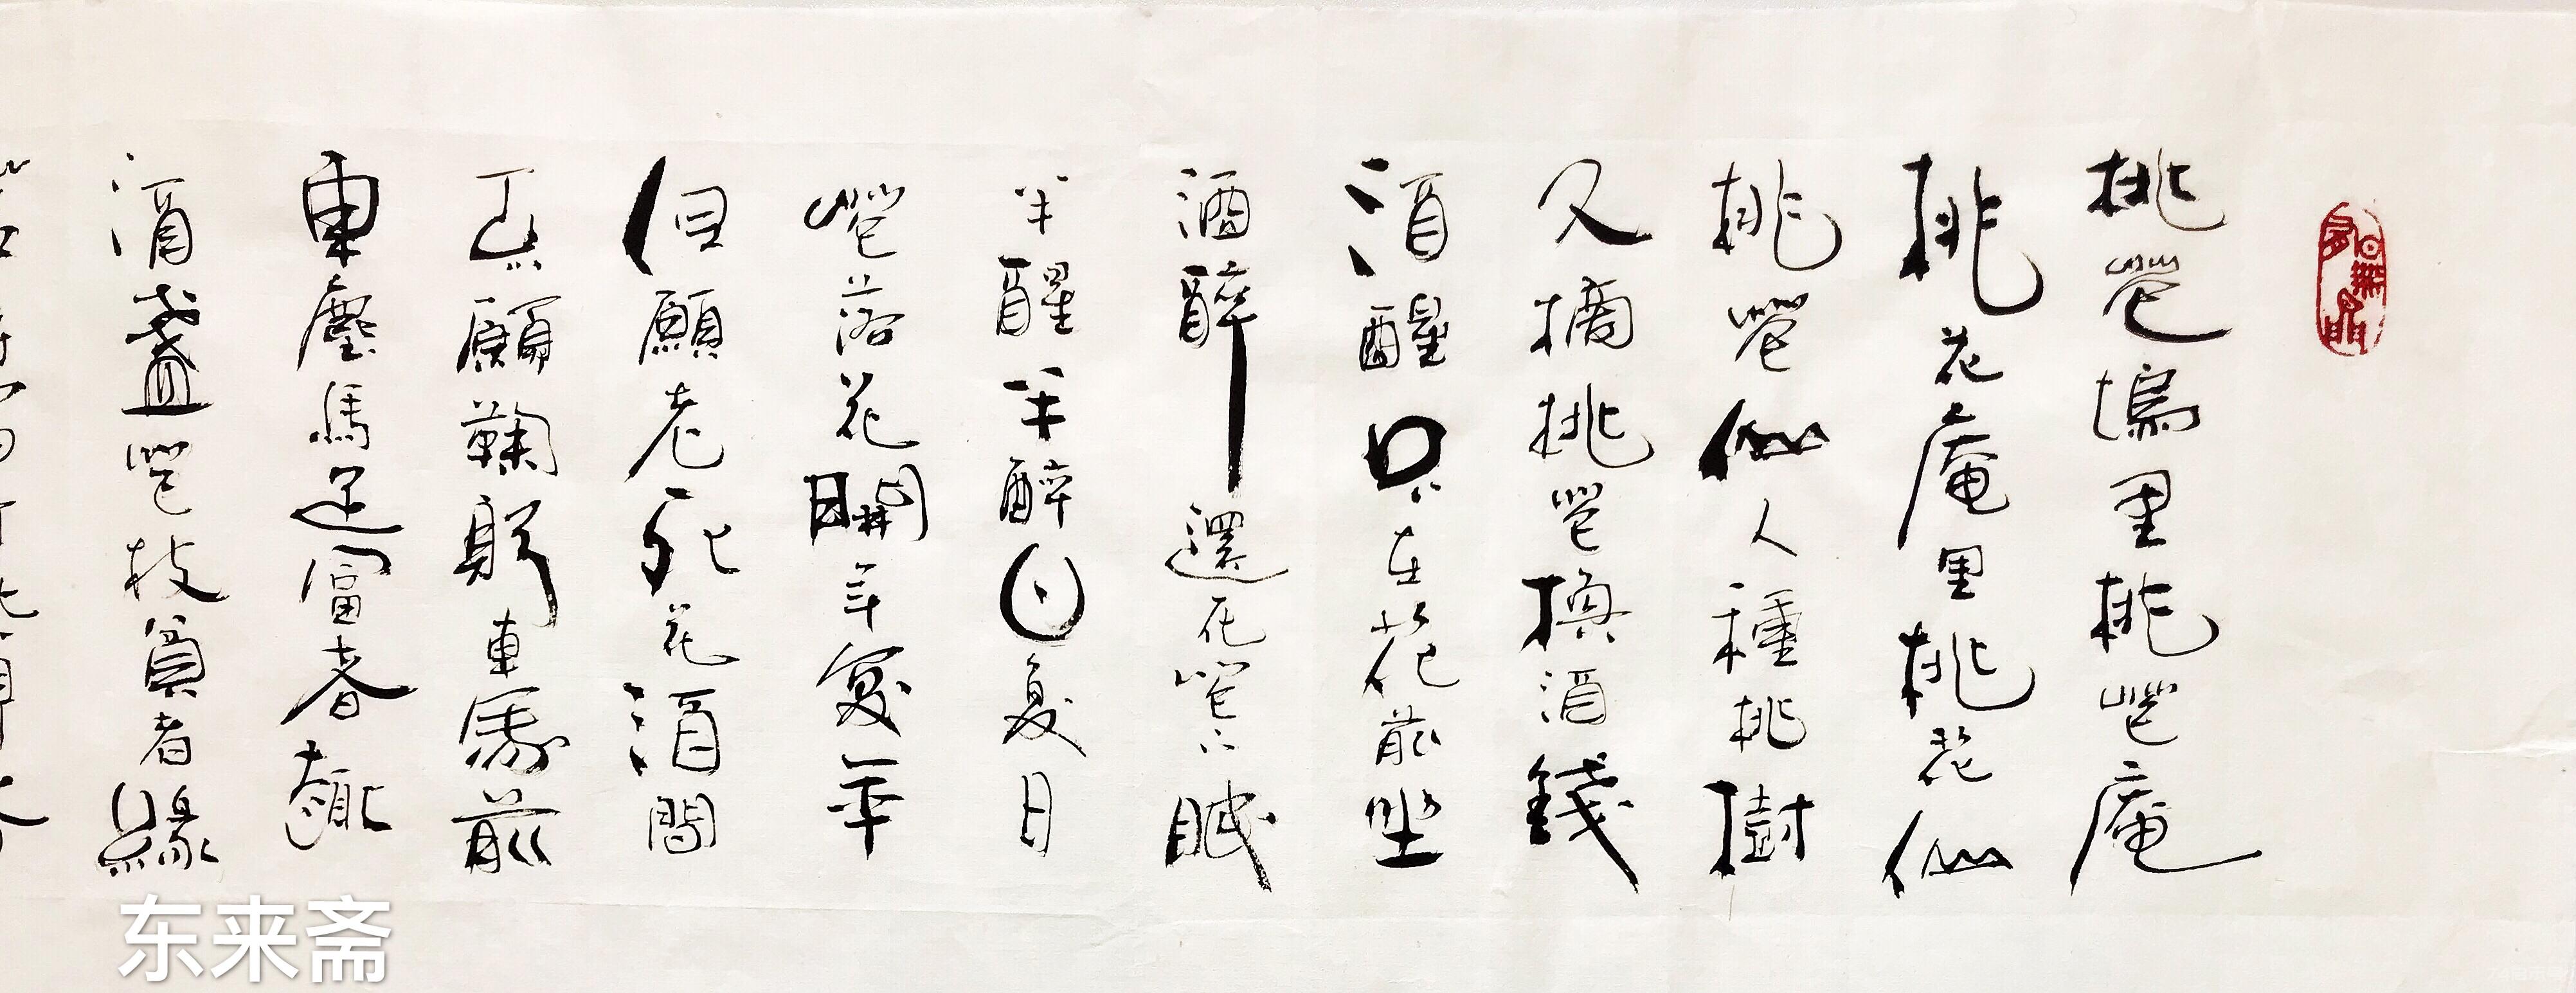 桃花塢里桃花庵
桃花庵里桃花仙
桃花仙人種桃樹
又摘桃花換酒錢
酒醒只在花前坐
酒醉還在花下眠
半醒半醉日复日
花落花開年复年
但願老死花酒間
不願鞠躬車馬前
車塵馬足富者趣
酒盞花枝貧者緣
东来斋